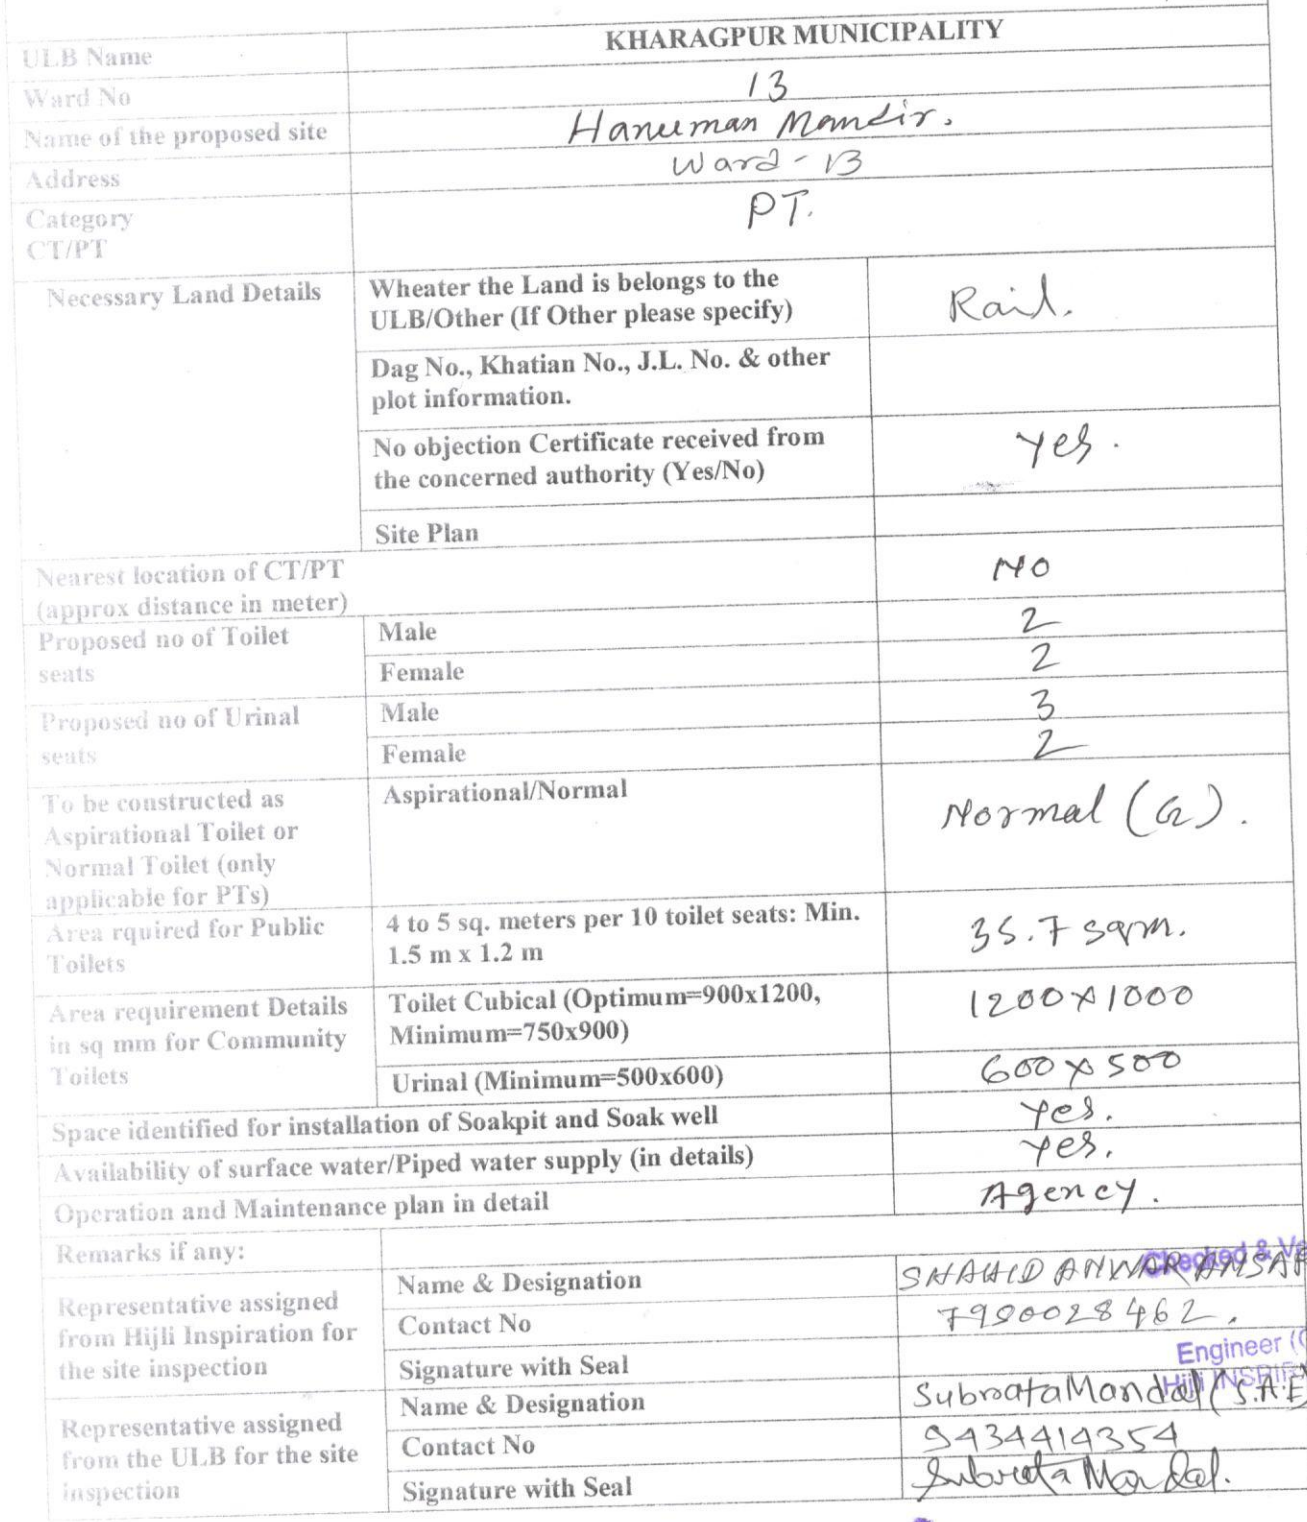 ULB Name KHARAGPUR MUNICIPALITY
Ward No 13
Name of the proposed site Hanuman Mandir.
Address Ward - 13
Category
CT/PT PT.
Necessary Land Details Wheater the Land is belongs to the
ULB/Other (If Other please specify) Rail.
Dag No., Khatian No., J.L. No. & other
plot information.
No objection Certificate received from
the concerned authority (Yes/No) Yes.
Site Plan
Nearest location of CT/PT
(approx distance in meter) NO
Proposed no of Toilet
seats
Male 2
Female 2
Proposed no of Urinal
seats
Male 3
Female 2
To be constructed as
Aspirational Toilet or
Normal Toilet (only
applicable for PTs)
Aspirational/Normal Normal (G).
Area rquired for Public
Toilets
4 to 5 sq. meters per 10 toilet seats: Min.
1.5 m x 1.2 m 35.7 sqm.
Area requirement Details
in sq mm for Community
Toilets
Toilet Cubical (Optimum=900x1200,
Minimum=750x900) 1200x1000
Urinal (Minimum=500x600) 600x500
Space identified for installation of Soakpit and Soak well Yes.
Availability of surface water/Piped water supply (in details) Yes.
Operation and Maintenance plan in detail Agency.
Remarks if any:
Representative assigned
from Hijli Inspiration for
the site inspection
Name & Designation SHAHID ANWAR ANSAR
Checked & Ve
Contact No 7980028462.
Signature with Seal
Engineer (C
Hijli INSPIR
Representative assigned
from the ULB for the site
inspection
Name & Designation Subrata Mandal (S.A.E)
Contact No 9434414354
Signature with Seal Subrata Mandal.